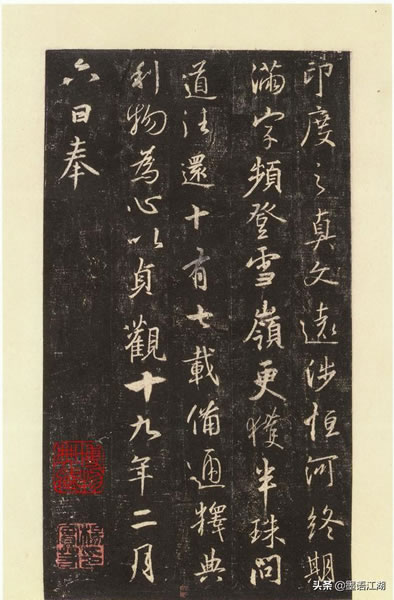 印度之真文遠涉恒河終期
滿字頻登雪嶺更獲半珠問
道往還十有七載備通釋典
利物為心以貞觀十九年二月
六日奉
头条 @语江湖